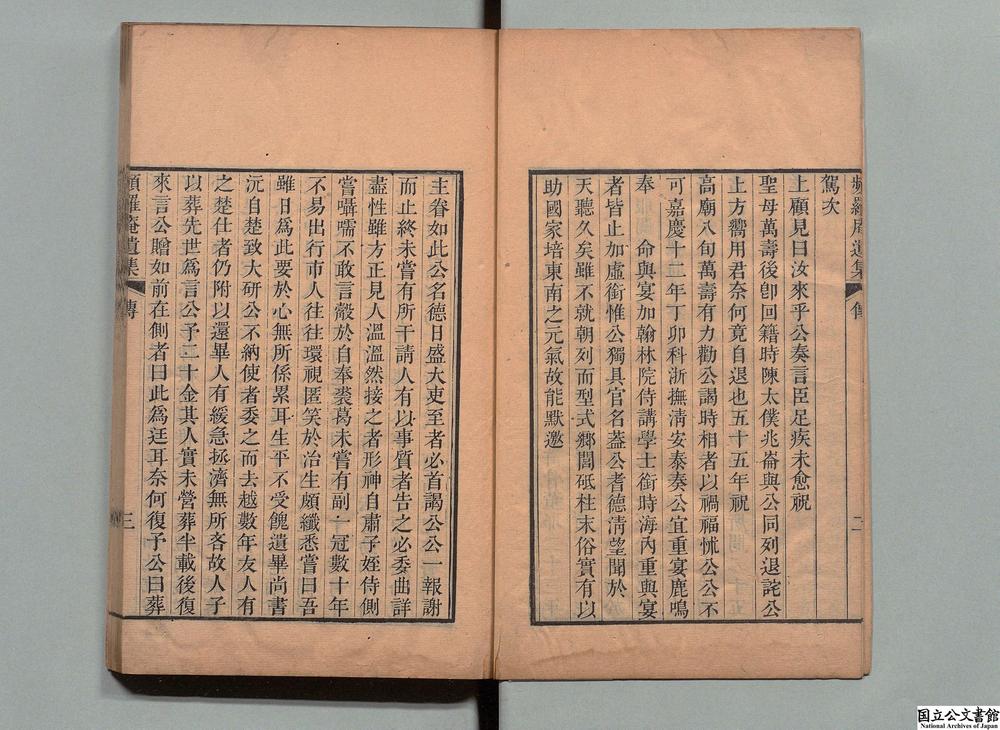 頻羅庵遺集
傳
二
駕次
上顧見曰汝來乎公奏言臣足疾未愈祝
聖母萬壽後卽回籍時陳太僕兆崙與公同列退詫公
上方嚮用君奈何竟自退也五十五年祝
高廟八旬萬壽有力勸公謁時相者以禍福怵公公不
可嘉慶十二年丁卯科浙撫淸安泰奏公宜重宴鹿鳴
奉 命與宴加翰林院侍講學士銜時海內重與宴
者皆止加虛銜惟公獨具官名蓋公耆德淸望聞於
天聽久矣雖不就朝列而型式鄉閭砥柱末俗實有以
助國家培東南之元氣故能默邀
主眷如此公名德日盛大吏至者必首謁公公一報謝
而止終未嘗有所干請人有以事質者告之必委曲詳
盡性雖方正見人溫溫然接之者形神自肅子姪侍側
嘗囁嚅不敢言縠於自奉裘葛未嘗有副一冠數十年
不易出行市人往往環視匿笑於冶生頗纖悉嘗曰吾
雖日爲此要於心無所係累耳生平不受餽遺畢尚書
沅自楚致大硏公不納使者委之而去越數年友人有
之楚仕者仍附以還畢人有緩急拯濟無所吝故人子
以葬先世爲言公予二十金其人實未營葬半載後復
來言公贈如前在側者曰此爲迋耳奈何復予公曰葬
頻羅庵遺集
傳
三
国立公文書館
National Archives of Japan